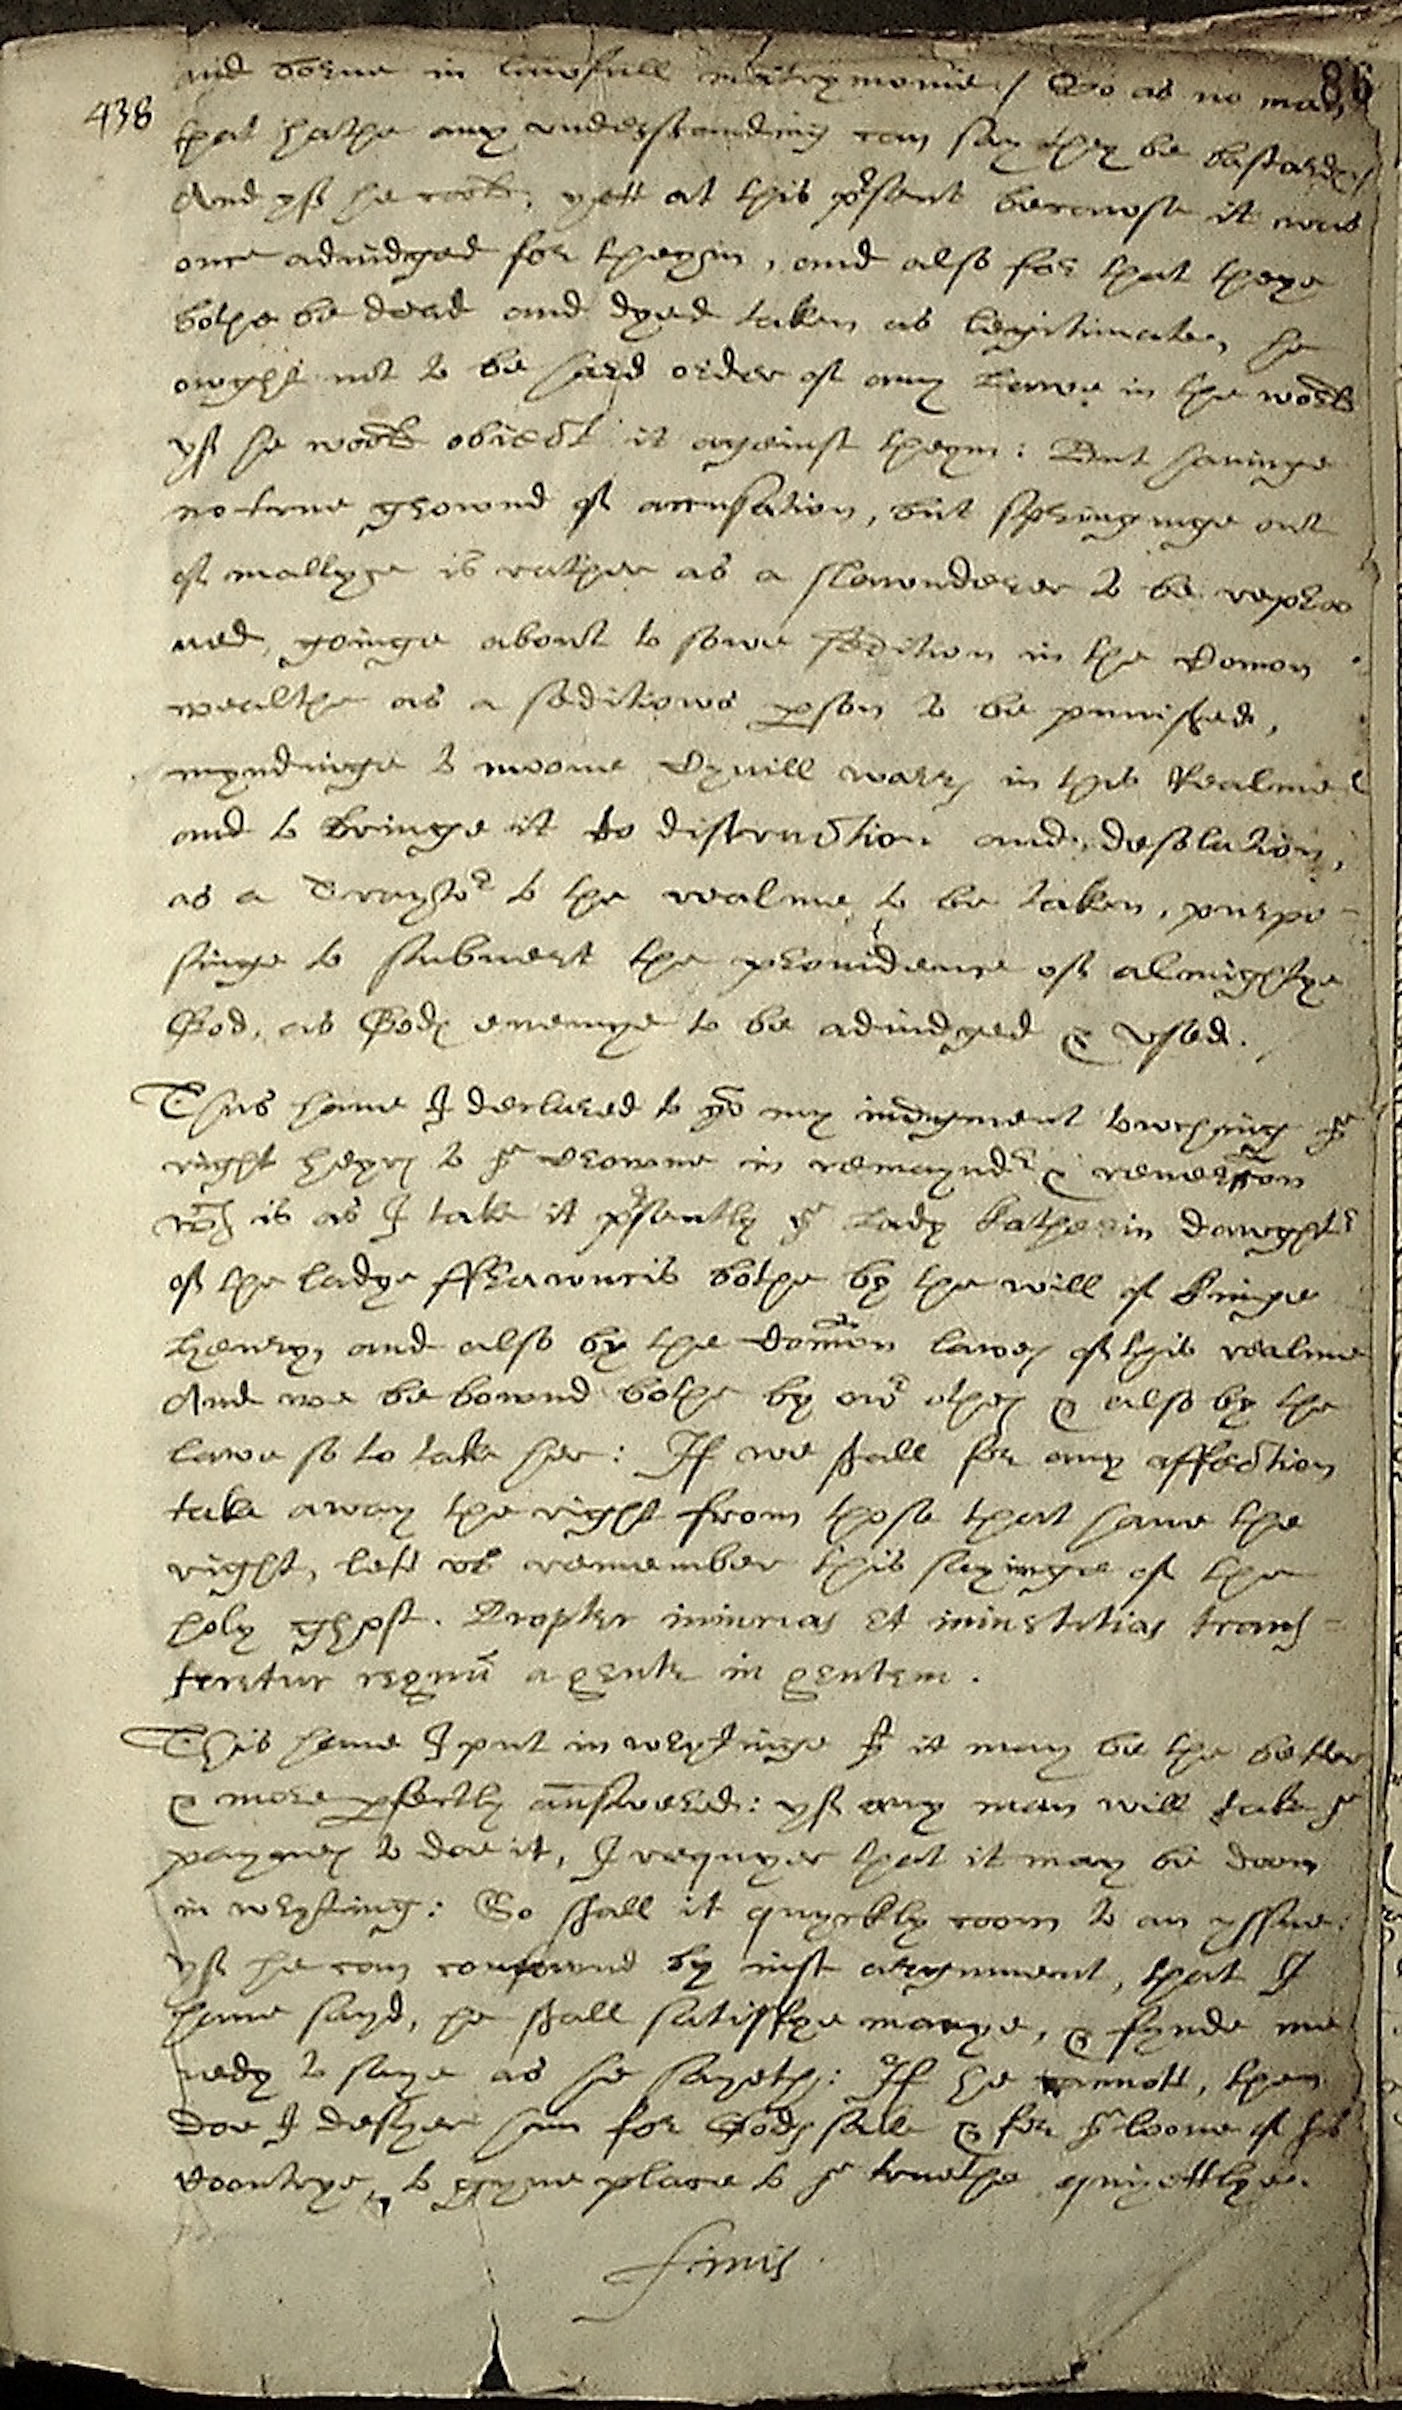 86
438
and borne in lawfull matrymonie / So as no man
that hathe any understanding can say they be bastardes
And yf he could, yett at this pͬsent becawse it was
once adiudged for theym, and also for that theye
bothe be dead and dyed taken as legitimate, he
owght not to be hard order of any Lawe in the world
yf he wold obiect it against theym: But havinge
no true grownd of accusation, but springinge out
of mallyce is rather as a slawnderer to be repro
ued, goinge about to sowe sedition in the Comon
wealthe as a seditiows ꝑson to be punished,
myndinge to moove Cyvill warres in this Realme
and to bringe it to distruction and desolation,
as a Traytoͬ to the realme to be taken, purpo-
singe to subuert the prouidence of almightye
God, as Godes enemye to be adiudged & vsed.
Thus haue I declared to yoͧ my iudgment towching yͤ
right heyres to yͤ crowne in remayndͬ & reuersion
wͨh is as I take it pͬsently yͤ Lady Katherin dawghtͬ
of the ladye ffrawncis bothe by the will of Kinge
Henry, and also by the Com̄on lawes of this realme
And we be bownd bothe by owͬ othes & also by the
lawe so to take her: If we shall for any affection
take away the right from those that haue the
right, lett vs remember this sayinge of the
holy ghost. Propter iniurias et iniustitias trans-
feretur regnū a gente in gentem.
This haue I put in wrytinge yͭ it may be the better
& more ꝑfectly answered: yf any man will take yͤ
paynes to doe it, I requyer that it may be doon
in wryting: So shall it quyckly coom to an yssue:
yf he can confownd by iust argument, that I
haue sayd, he shall satisfye manye, & fynde me
redy to saye as he sayeth: If he cannott, then
doe I desyer him for Godes sake & for yͤ loove of his
Coontrye, to gyve place to yͤ truethe quiettlye.
finis